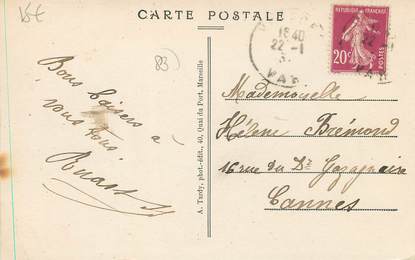 15€
CARTE POSTALE
(83)
1840
22-1
VAR
20c
POSTES
Bons baisers à
vous tous.
A. Tardy, phot.-édit., 40, Quai du Port, Marseille
Mademoiselle
Hélène Brémond
16 rue du Dr
Cannes